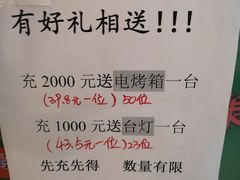 有好礼相送!!!
充 2000 元送电烤箱一台
(39.8元一位) 50位
充 1000 元送台灯一台
(43.5元一位) 23位
先充先得 数量有限